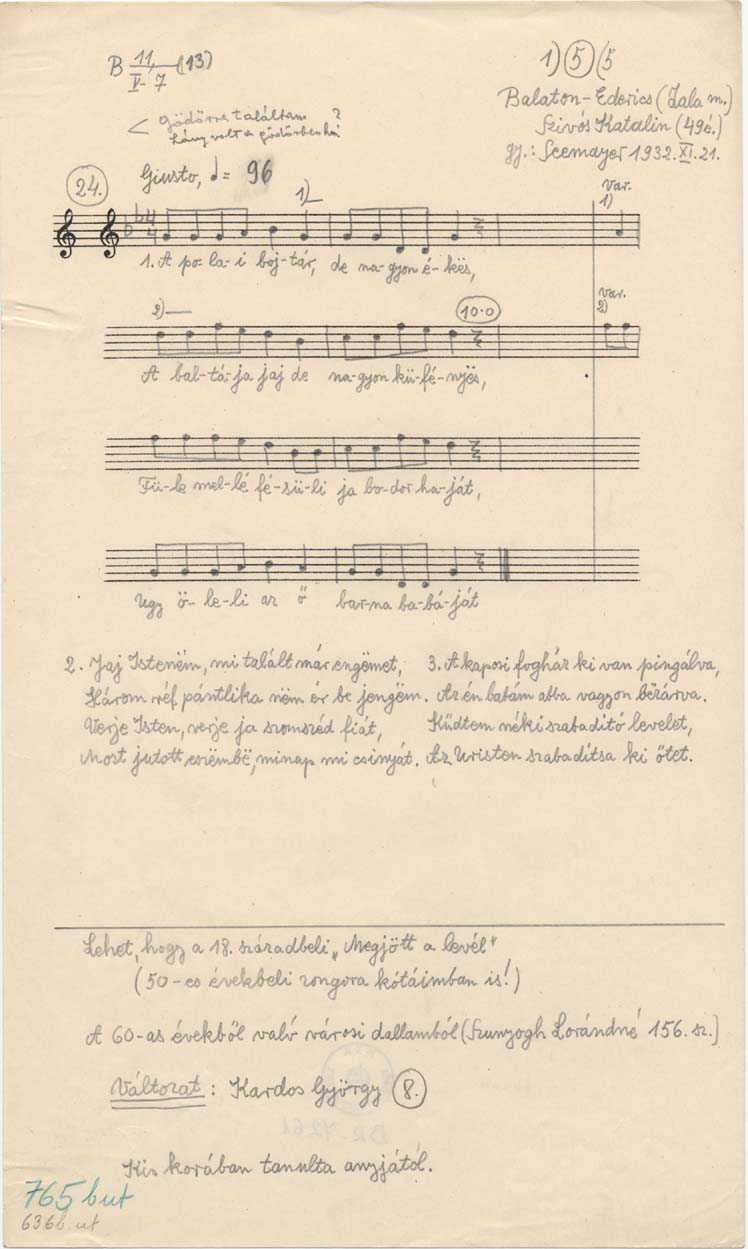 B 11, (13)
V- 7
1) 5 (5
Balaton-Ederics (Zala m.)
Szivós Katalin (49é.)
gy.: Seemayer 1932. XI. 21.
< Gödörre találtam ?
hány volt a gödörben
24.
Giusto, ♩ = 96
1)
var.
1)
1. A po-la-i boj-tár, de na-gyon é-kës,
2)
10·0
var.
2)
A bal-tá-ja jaj de na-gyon kü-fé-nyës,
Fü-le mel-lé fé-sü-li ja bo-dor ha-ját,
Ugy ö-le-li az ő bar-na ba-bá-ját
2. Jaj Istenëm, mi talált már engëmet,
Három réf pántlika nëm ér be jengëm.
Verje Isten, verje ja szomszéd fiát,
Most jutott eszëmbë, minap mi csinyját.
3. A kaposi fogház ki van pingálva,
Az én babám abba vagyon bëzárva.
Küdtem néki szabaditó levelet,
Az Uristen szabadítsa ki őtet.
Lehet, hogy a 18. századbeli „Megjött a levél"
(50-es évekbeli zongora kótáimban is!)
A 60-as évekből való városi dallamból (Szunyogh Lorándné 156. sz.)
Változat: Kardos György 8.
Kis korában tanulta anyjától.
765 but
636b. ut